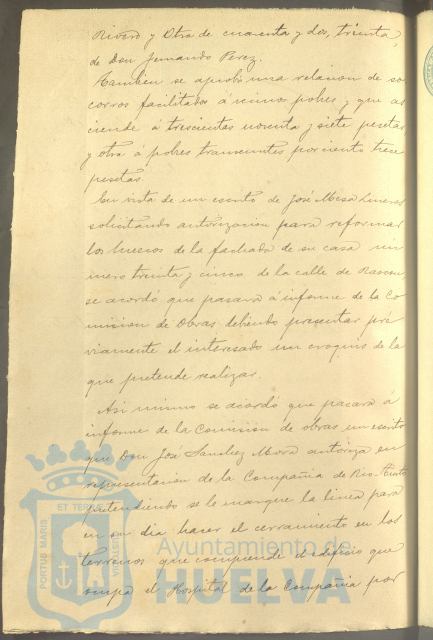 Rivero y Otra de cuarenta y dos, treinta,
de Don Fernando Perez.
Tambien se aprobó una relacion de so
corros facilitados á niños pobres y que as
ciende á trescientas noventa y siete pesetas
y otra á pobres transeuntes por ciento trece
pesetas.
En vista de un escrito de José Mesa
solicitando autorizacion para reformar
los huecos de la fachada de su casa nú
mero treinta y cinco de la calle de Rascon
se acordó que pasara á informe de la Co
mision de Obras, debiendo presentar pré
viamente el interesado un croquis de la
que pretende realizar.
Asi mismo se acordó que pasara á
informe de la Comision de obras un escrito
que Don José Sanchez Mora autoriza en
representacion de la Compañia de Rio-Tinto
pretendiendo se le marque la linea para
en su dia hacer el cerramiento en los
terrenos que comprende el edificio que
ocupa el Hospital de la Compañia por
PORTUS MARIS ET TERRAE CUSTODIA
Ayuntamiento de
HUELVA